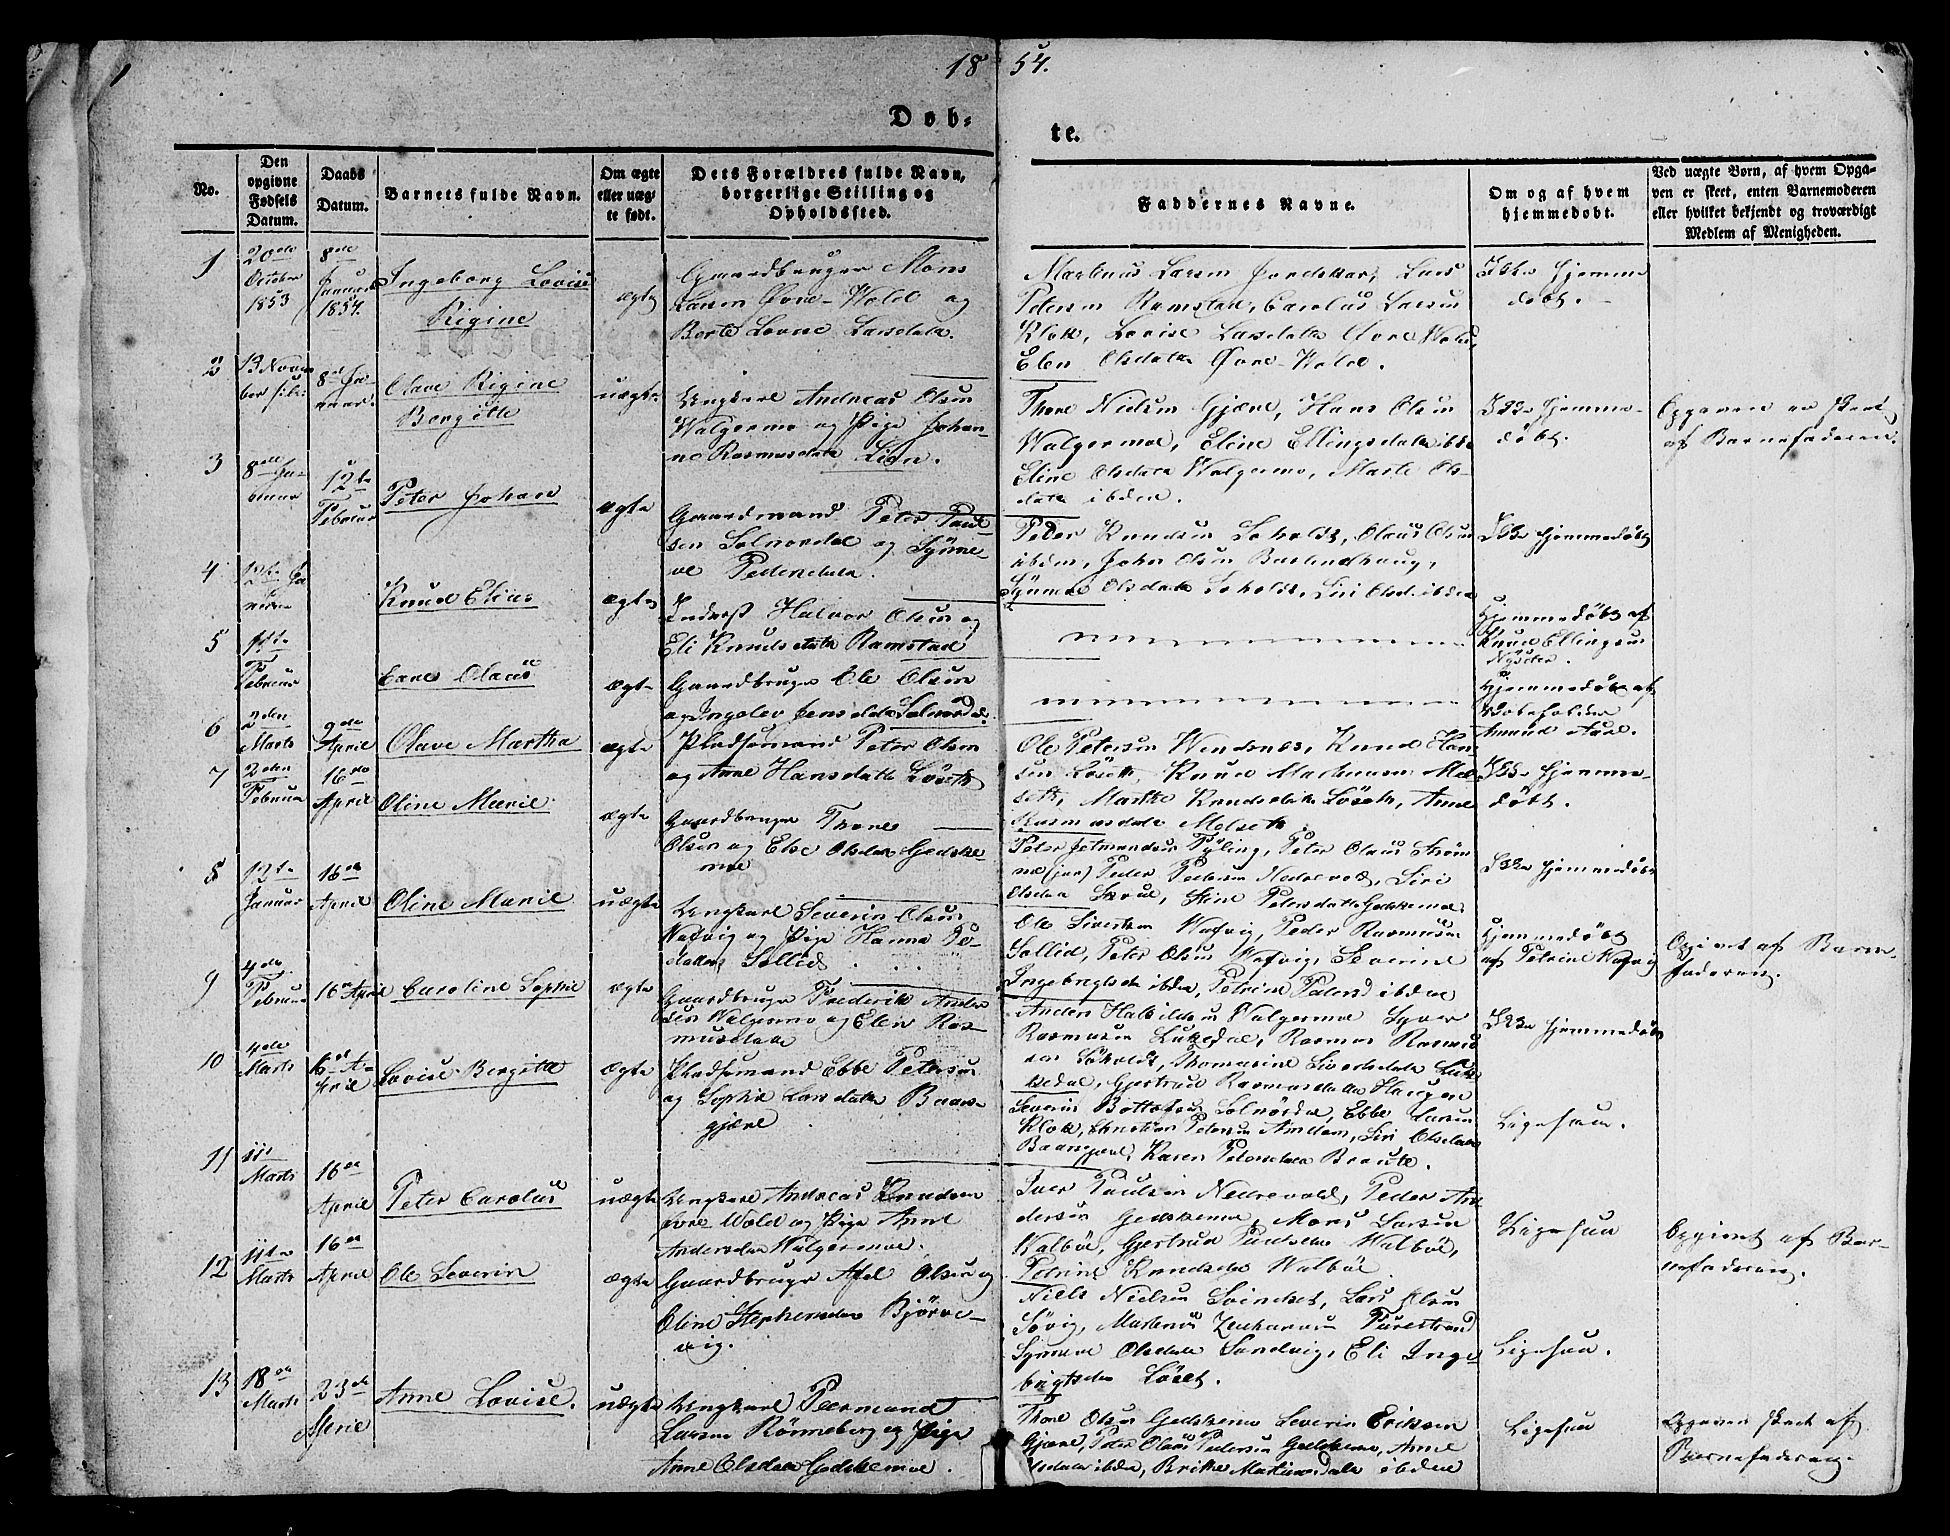 1854.
Døbte.
No.
Den opgivne Fødsels Datum.
Daabs Datum.
Barnets fulde Navn.
Om ægte eller uægte født.
Dets Forældres fulde Navn, borgerlige Stilling og Opholdssted.
Faddernes Navne.
Om og af hvem hjemmedøbt.
Ved uægte Børn, af hvem Opgaven er skeet, enten Barnemoderen eller hvilket bekjendt og troværdigt Medlem af Menigheden.
1
20de October 1853
8de Januar 1854.
Ingeborg Lovise Rigine
ægte
Gaardbruger Mons
Larsen Øvre-Wold og
Berte Lovne Larsdatr.
Martinus Larsen Jordskar, Lars
Petersen Ramstad, Carolus Larsen
Klok, Lovise Larsdatr Øvre Wold,
Elen Olsdatr Øvre-Wold.
Ikke hjemmedøbt.
2
13 Novem
8de Januar.
Olave Rigine Bergitte
uægte
Ungkarl Andreas Olsen
Walgermo og Pige Johanne
Rasmusdatr Lien.
Thore Nielsen Gjære, Hans Olsen
Walgermoe, Eline Ellingsdatr ibde
Eline Olsdatr Walgermo, Marte Olsdatr
ibdem.
Ikke hjemmedøbt.
Opgaven er skeet
af Barnefaderen.
3
8de Januar
12te Februar
Peter Johan
ægte
Gaardmand Peter Paulsen
Solnordal og Synneve
Pedersdatr.
Peder Knudsen Soholt, Olaus Olsen
ibdem, John Olsen Burlandhaug,
Synneve Olsdatr Soholt, Siri Olsd. ibdem
Ikke hjemmedøbt
4
12te Januar
Knud Elias
ægte
Inderst Halvor Olsen og
Eli Knudsdatr Ramstad
Hjemmedøbt af
Knud Ellingsen
5
Februar
Carl Olaus
ægte
Gaardbruger Ole Olsen
og Ingelev Jensdatr Solnord.
Hjemmedøbt af
Amund Aure.
6
2den Marts
9de April
Olave Martha
ægte
Pladsemand Peter Olsen
og Anne Hansdatr Løseth
Ole Petersen Wendsnes, Knud Hansen
Løseth, Knud Martinusen Melseth,
Marthe Knudsdatr Løseth, Anne
Rasmusdatr Melseth.
Ikke hjemmedøbt.
7
2den Februar
16de April
Oline Marie
ægte
Gaardbruger Thore
Olsen og Else Olsdatr Gedskemoe
Peter Jetmundsen Fylling, Peter Olaus Strømme
(jun) Peder Pedersen Nedrevold, Siri
Olsdatr Skrul, Stine Petersdatr Gedskemoe.
Ikke hjemmedøbt
8
12te Januar
16de April
Oline Marie
uægte
Ungkarl Severin Olsen
Wafvig og Pige Hanna Pedersdatter
Sollid.
Ole Sivertsen Wafvig, Peder Rasmusen
Sollid, Peter Olsen Wafvig, Severine
Ingebregtsdr ibdm, Petrine Petersd ibdm
Hjemmedøbt
af Petrine Wafvig
Opgivet af Barnefaderen.
9
4de Februar
16de April
Caroline Sophie
ægte
Gaardbruger Frederik Andersen
Walgermo og Elen Rasmusdatr
Anders Halvildsen Walgermoe, Syver
Rasmusen Lukedal, Rasmus Rasmusen
Soholdt, Thomasine Sivertsdatr Lukkedal,
Gjertrud Rasmusdatr Haugen
Ikke hjemmedøbt
10
4de Marts
16de April
Lovise Bergitte
ægte
Pladsemand Ebbe Petersen
og Sophie Larsdatr Baarsgjære
Severin Bottolfsen Solnørdal, Ebbe Larsen
Klok, Christian Petersen Amdam, Siri Olsdatr
Baarsgjærd, Karen Petersdatr Braute.
Ligesaa.
11
11te Marts
16de April
Peter Carolus
uægte
Ungkarl Andreas Knudsen
Øvre Wold og Pige Anne
Andersdatr Walgermoe.
Iver Paulsen Nedrevold, Peder Andersen
Gedskemoe, Mons Larsen
Walbøe, Gjertrud Paulsdatr Walbøe,
Petrine Knudsdatr Walbøe
Ligesaa
Opgivet af Barnefaderen.
12
11te Marts
16de April
Ole Severin
ægte
Gaardbruger Axel Olsen og
Oline Stephensdatr Bjørvevig.
Niels Nielsen Svindset, Lars Olsen
Søvig, Martinus Zachariasen Furestrand
Synneve Olsdatr Sandvig, Eli Ingebrigtsdr
Løset.
Ligesaa.
13
18de Marts
23de April
Anne Lovise.
uægte
Ungkarl Peermund
Larsen Rønneberg og Pige
Anne Olsdatr Gedskemoe.
Thore Olsen Gedskemoe Severin Eriksen
Gjære, Peter Olaus Pedersen Gedskemoe, Anne
Olsdatr ibdm, Brithe Martinusdatr ibdem
Ligesaa
Opgaven skeet af
Barnefaderen.